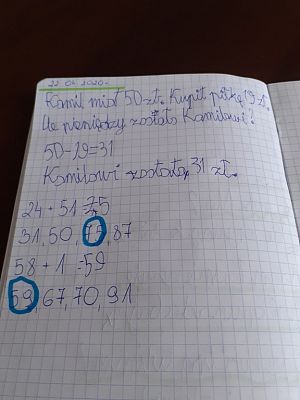 22.04.2020r.
Kamil miał 50 zł. Kupił piłkę 19 zł.
Ile pieniędzy zostało Kamilowi?
50-19=31
Kamilowi została 31 zł.
24+51=75
31,50,75,87
58+1=59
59,67,70,91